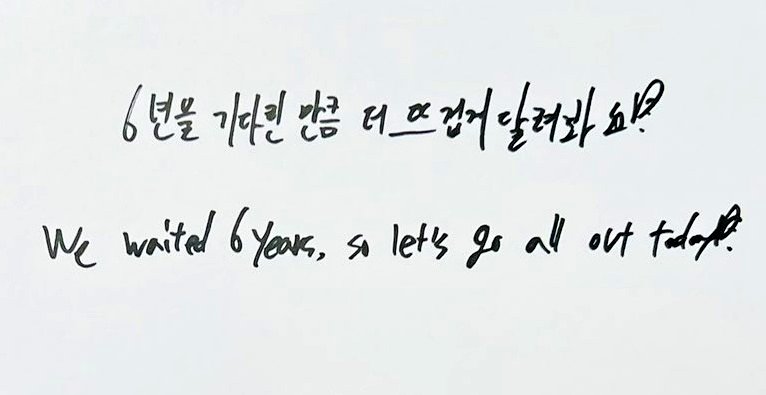 6년을 기다린 만큼 더 뜨겁게 달려봐요!?
We waited 6 years, so let's go all out today!?